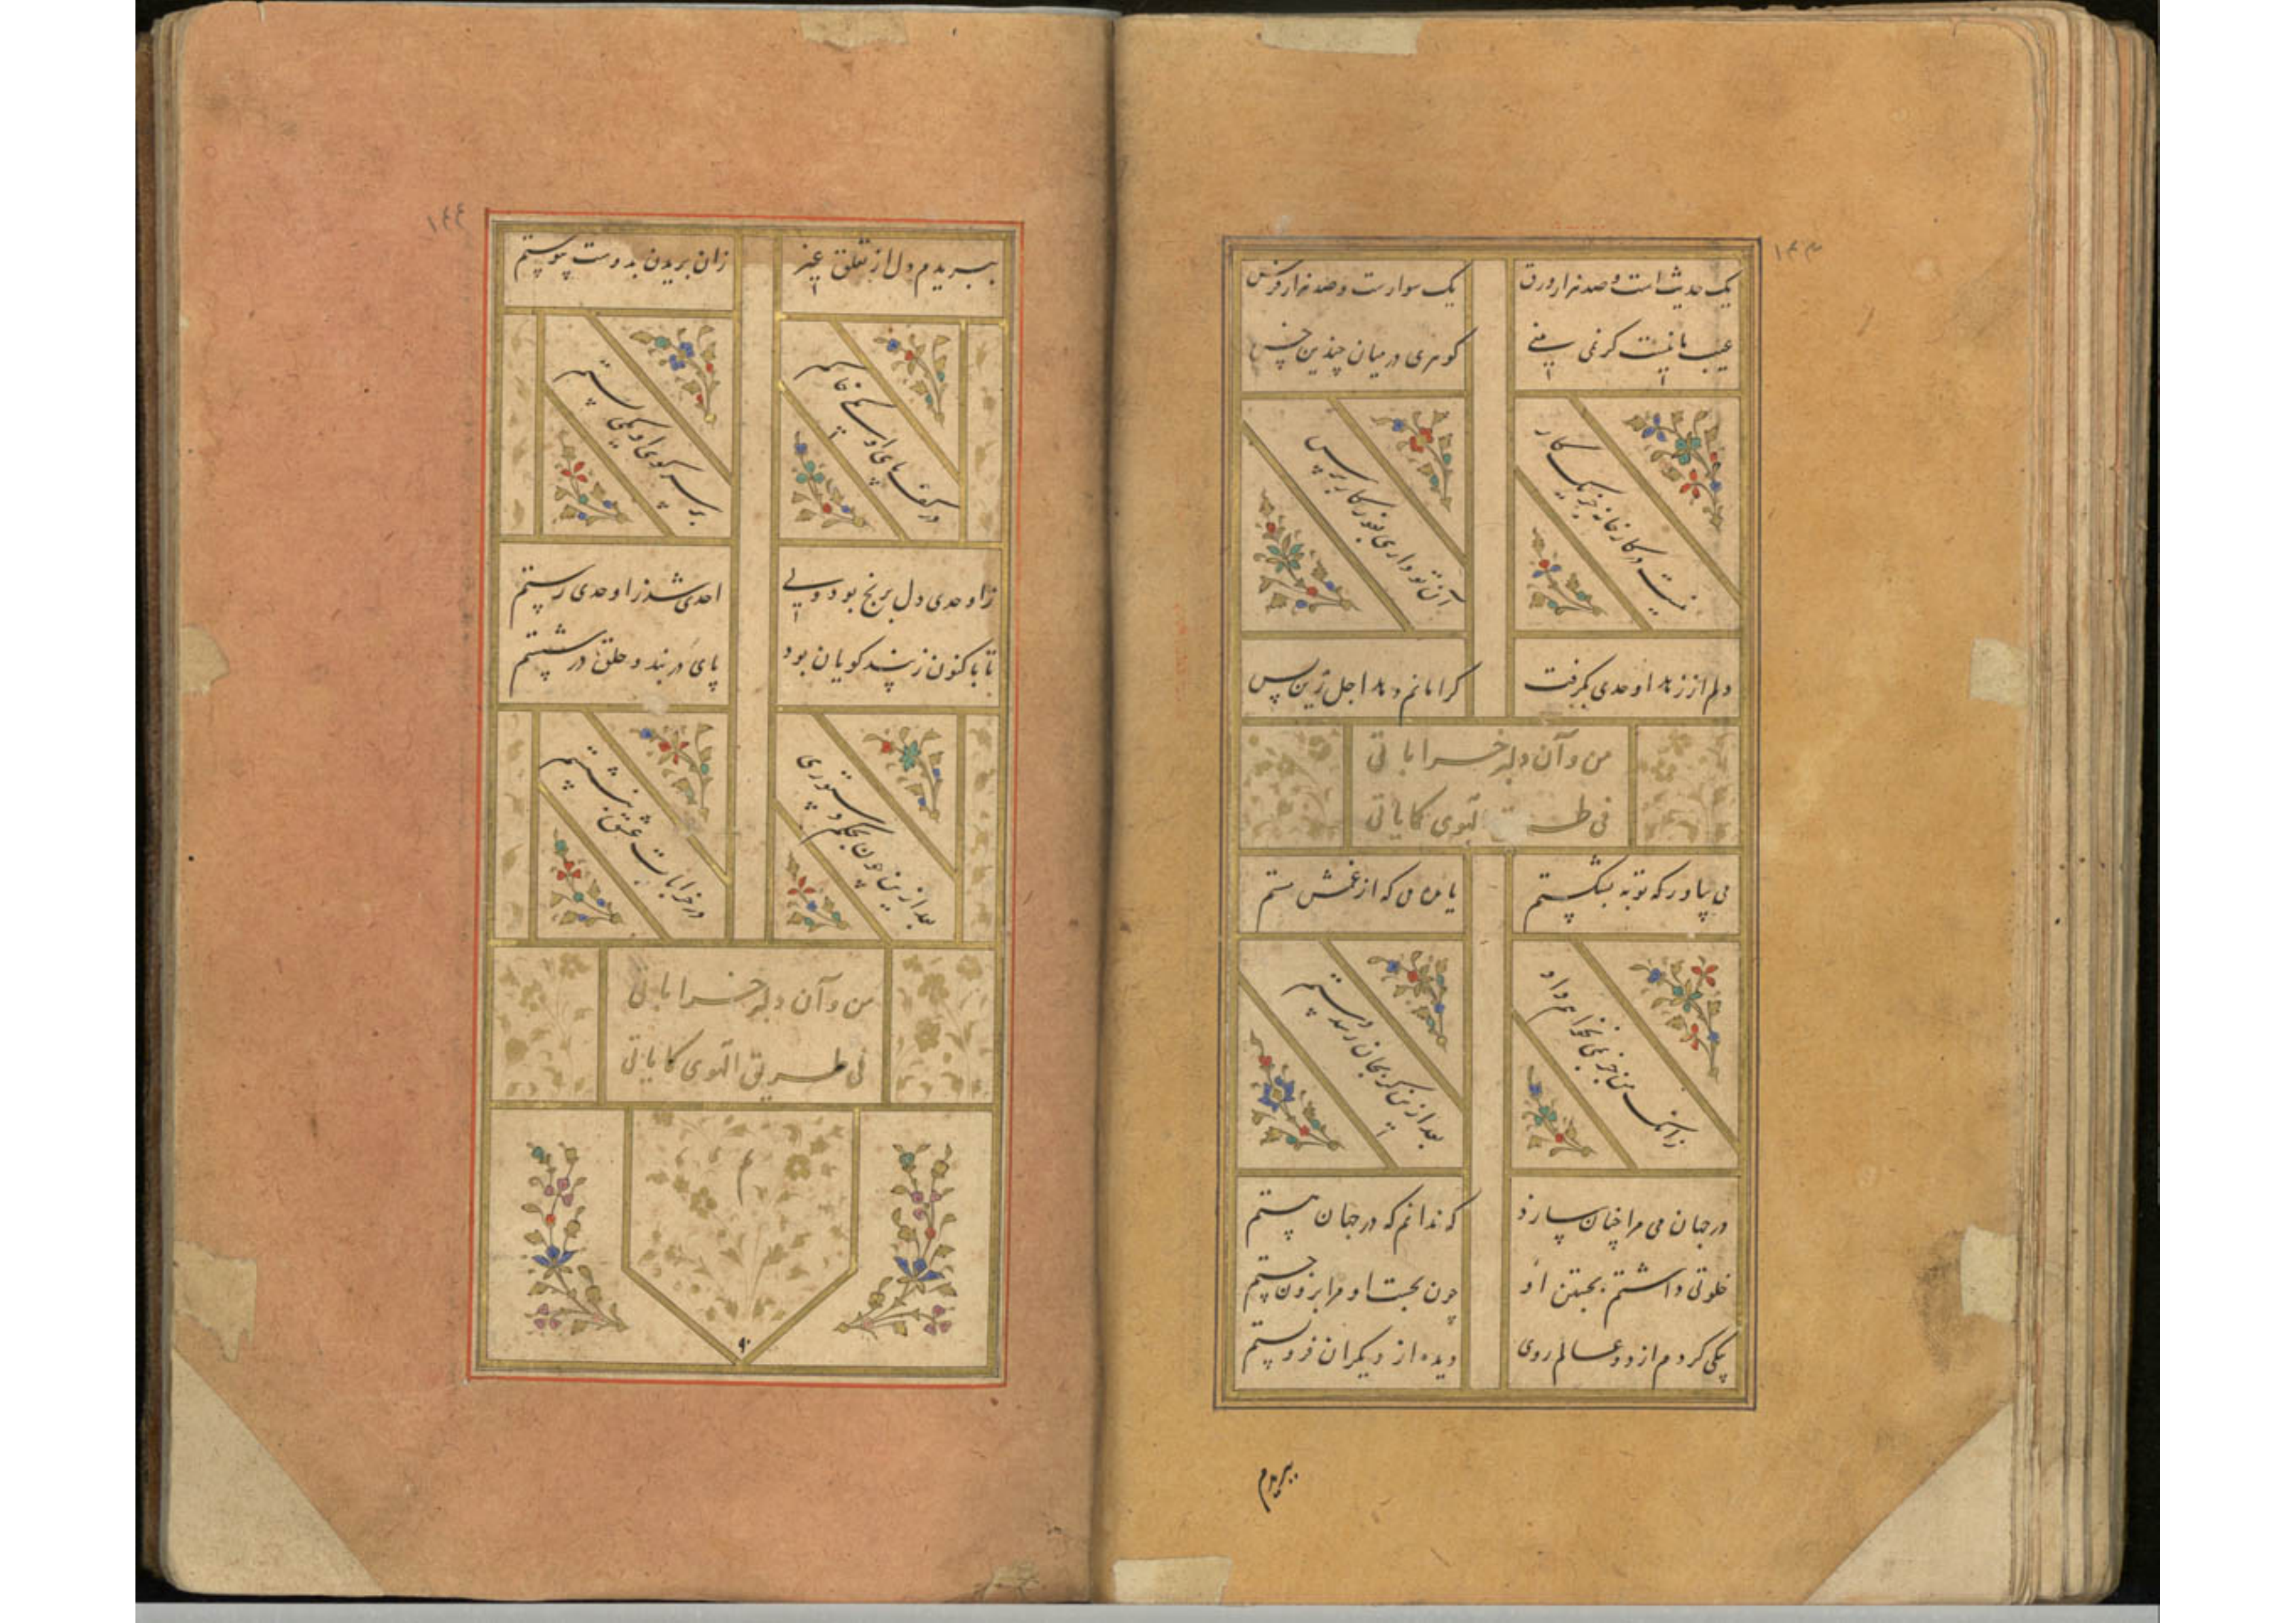 ۱۴۳
یک حدیث است و صد هزار ورق یک سوارست و صد هزار فرس
عیب ما نیست گر نمی بینی گوهری در میان چندین خس
نیست در کارخانه جز یک کار آن تو داری بغور کار برس
دلم از زهد اوحدی بگرفت گر بمانم و اجل زین پس
من و آن دلبر خراباتی
فی طریق الهوی کمایاتی
می بیاور که توبه بشکستم که از غمش مستم
زانک من جز بمی نخواهم داد بعد ازین گر بجان رسد دستم
در جهان می مرا چنان سازد که ندانم که در جهان هستم
خلوتی داشتم بجستن او چون بجست او مرا برون جستم
یکی کردم از دو عالم روی دیده از دیگران فرو بستم
ببریدم
۱۴۴
ببریدم دل از تعلق غیر زان بریدن بدوست پیوستم
در کف پای او سخی خاکم بر سر کوی او یکی پستم
زاوحدی دل برنج بود ولی احدی شد ز اوحدی رستم
تا باکنون ز پند گویان بود پای در بند و حلق در شستم
بعد ازین چون بحکم دستوری در خرابات عشق بنشستم
من و آن دلبر خراباتی
فی طریق الهوی کمایاتی
م